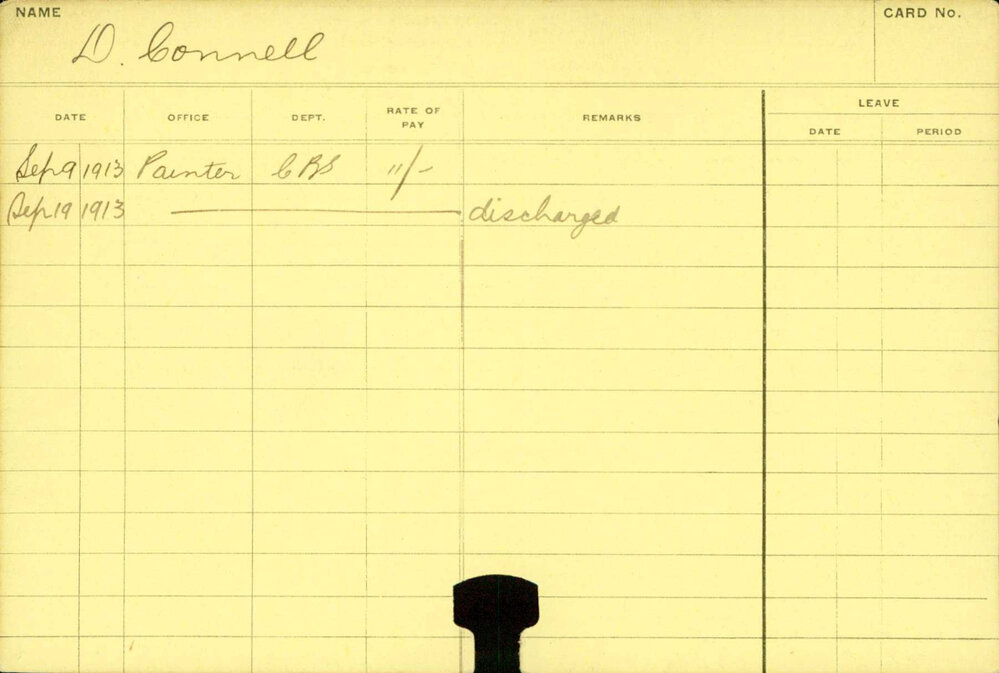 NAME
CARD No.
D. Connell
DATE OFFICE DEPT. RATE OF PAY REMARKS LEAVE
DATE PERIOD
Sep 9 1913 Painter CBS 11/-
Sep 19 1913 discharged